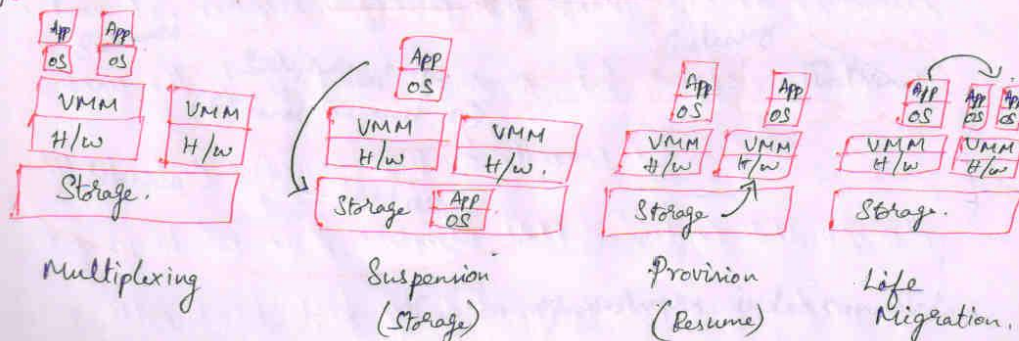 App
OS
App
OS
VMM
H/W
VMM
H/W
Storage.
Multiplexing
App
OS
VMM
H/W
VMM
H/W.
Storage
App
OS
Suspension
(Storage)
App
OS
App
OS
VMM
H/W
VMM
H/W
Storage
Provision
(Resume)
App
OS
App
OS
App
OS
VMM
H/W
VMM
H/W
Storage.
Life
Migration.